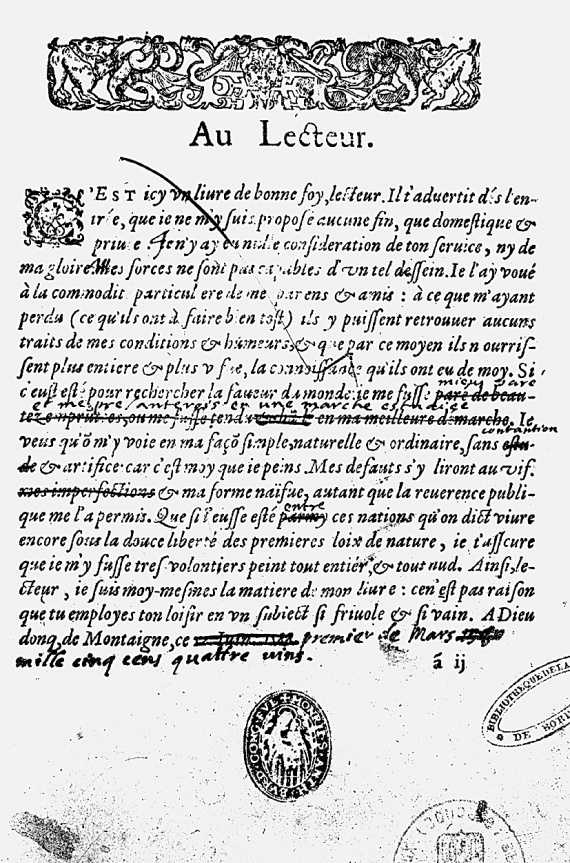 Au Lecteur.
C'EST icy vn liure de bonne foy, lecteur. Il t'aduertit dés l'en-
trée, que ie ne m'y suis proposé aucune fin, que domestique &
priuée. Ie n'y ay eu nulle consideration de ton seruice, ny de
ma gloire. Mes forces ne sont pas capables d'vn tel dessein. Ie l'ay voué
à la commodité particuliere de mes parens & amis : à ce que m'ayant
perdu (ce qu'ils ont à faire bien tost) ils y puissent retrouuer aucuns
traits de mes conditions & humeurs, & que par ce moyen ils nourris-
sent plus entiere & plus vifue, la connoissance qu'ils ont eu de moy. Si
c'eust esté pour rechercher la faueur du monde, ie me fusse paré de beau-
mieus paré
tez empruntées, ou me fusse tendu en ma meilleure démarche. Ie
et une marche estudiee
veus qu'ō m'y voie en ma façō simple, naturelle & ordinaire, sans estu-
contantion
de & artifice: car c'est moy que ie peins. Mes defauts s'y liront au vif.
mes imperfections & ma forme naïfue, autant que la reuerence publi-
que me l'a permis. Que si i'eusse esté parmy ces nations qu'on dict viure
entre
encore sous la douce liberté des premieres loix de nature, ie t'asseure
que ie m'y fusse tres-volontiers peint tout entier, & tout nud. Ainsi, le-
cteur, ie suis moy-mesmes la matiere de mon liure : ce n'est pas raison
que tu employes ton loisir en vn subiect si friuole & si vain. A Dieu
donq, de Montaigne, ce premier de Mars
mille cinq cens quattre vins.
ā ij
BIBLIOTHEQUE DE LA
DE BORD